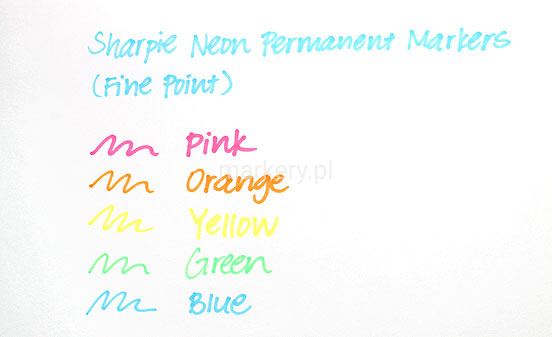 Sharpie Neon Permanent Markers
(Fine Point)
Pink
markery.pl
Orange
Yellow
Green
Blue